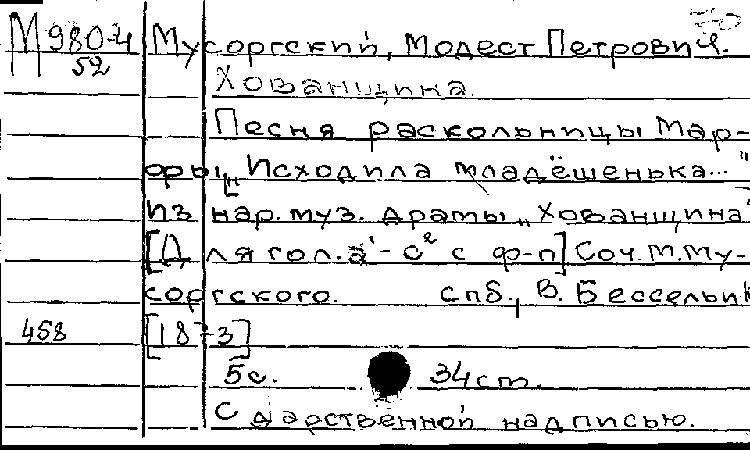 М 980-4 Мусоргский, Модест Петрович.
52
Хованщина.
Песня раскольницы Мар-
фы „Исходила младёшенька..."
из нар. муз. драмы „Хованщина"
[Для гол. а¹ - с² с ф-п] Соч. М. Му-
соргского. спб., В. Бессель и К
458 [1873]
5 с. 34 ст.
С дарственной надписью.